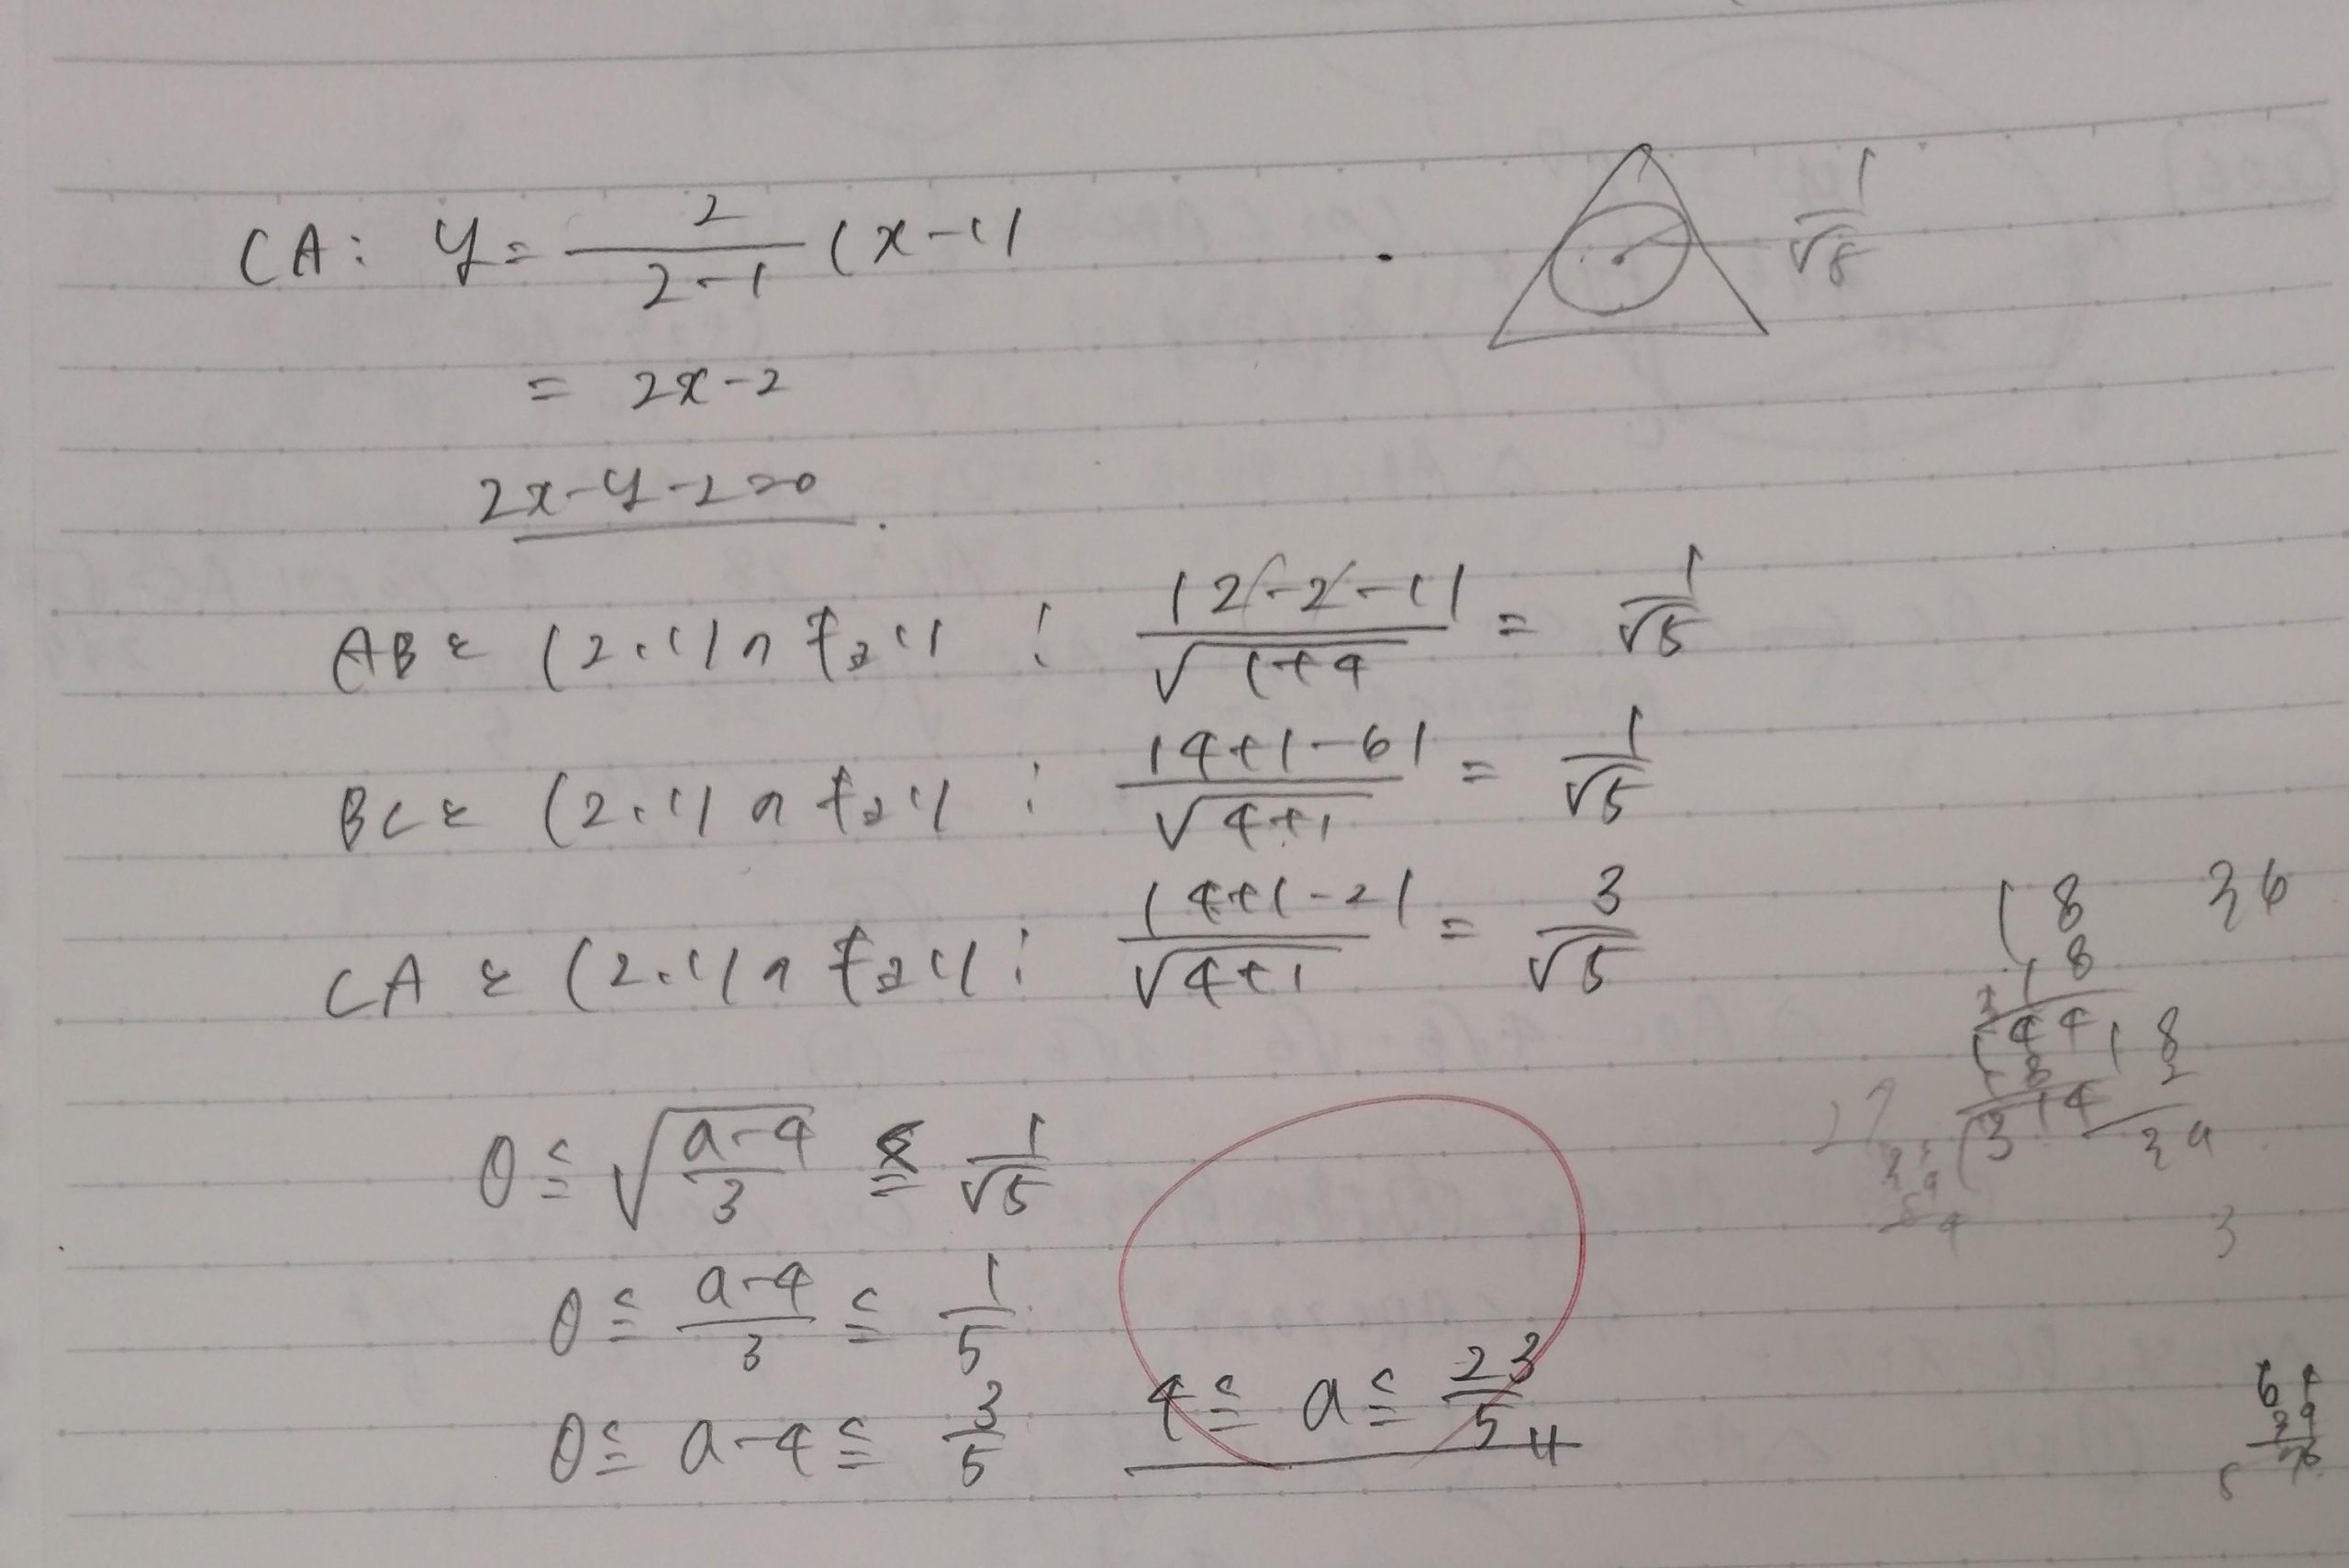 CA: y = 2/(2-1) (x-1)
= 2x-2
2x-y-2=0
1/√5
ABと(2,1)のキョリ: |2-2-1|/√(1+4) = 1/√5
BCと(2,1)のキョリ: |4+1-6|/√(4+1) = 1/√5
CAと(2,1)のキョリ: |4+1-2|/√(4+1) = 3/√5
0≦√((a-4)/3)≦1/√5
0≦(a-4)/3≦1/5
0≦a-4≦3/5
4≦a≦23/5
18 36
18
144
18
18
2
3